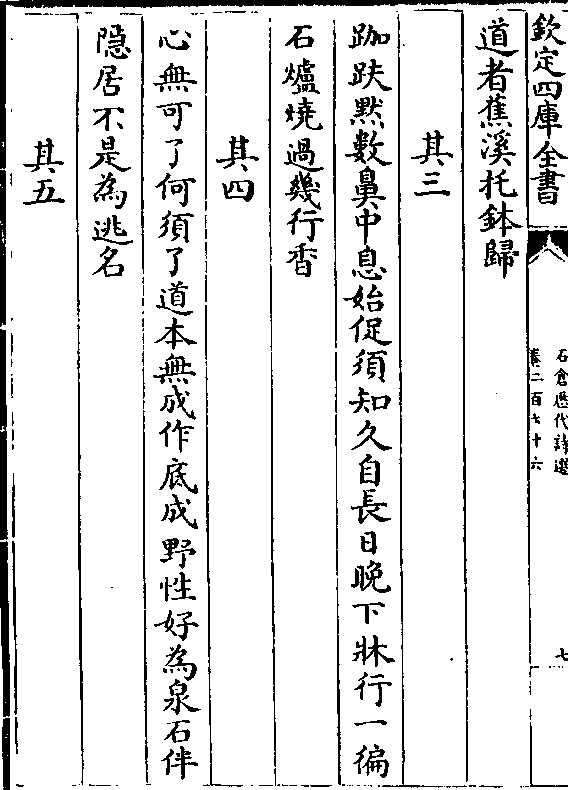 欽定四庫全書
石倉歷代詩選
卷二百七十六
七
道者蕉溪托鉢歸
其三
跏趺黙數鼻中息始促須知久自長日晚下牀行一徧
石爐燒過幾行香
其四
心無可了何須了道本無成作底成野性好為泉石伴
隠居不是為逃名
其五